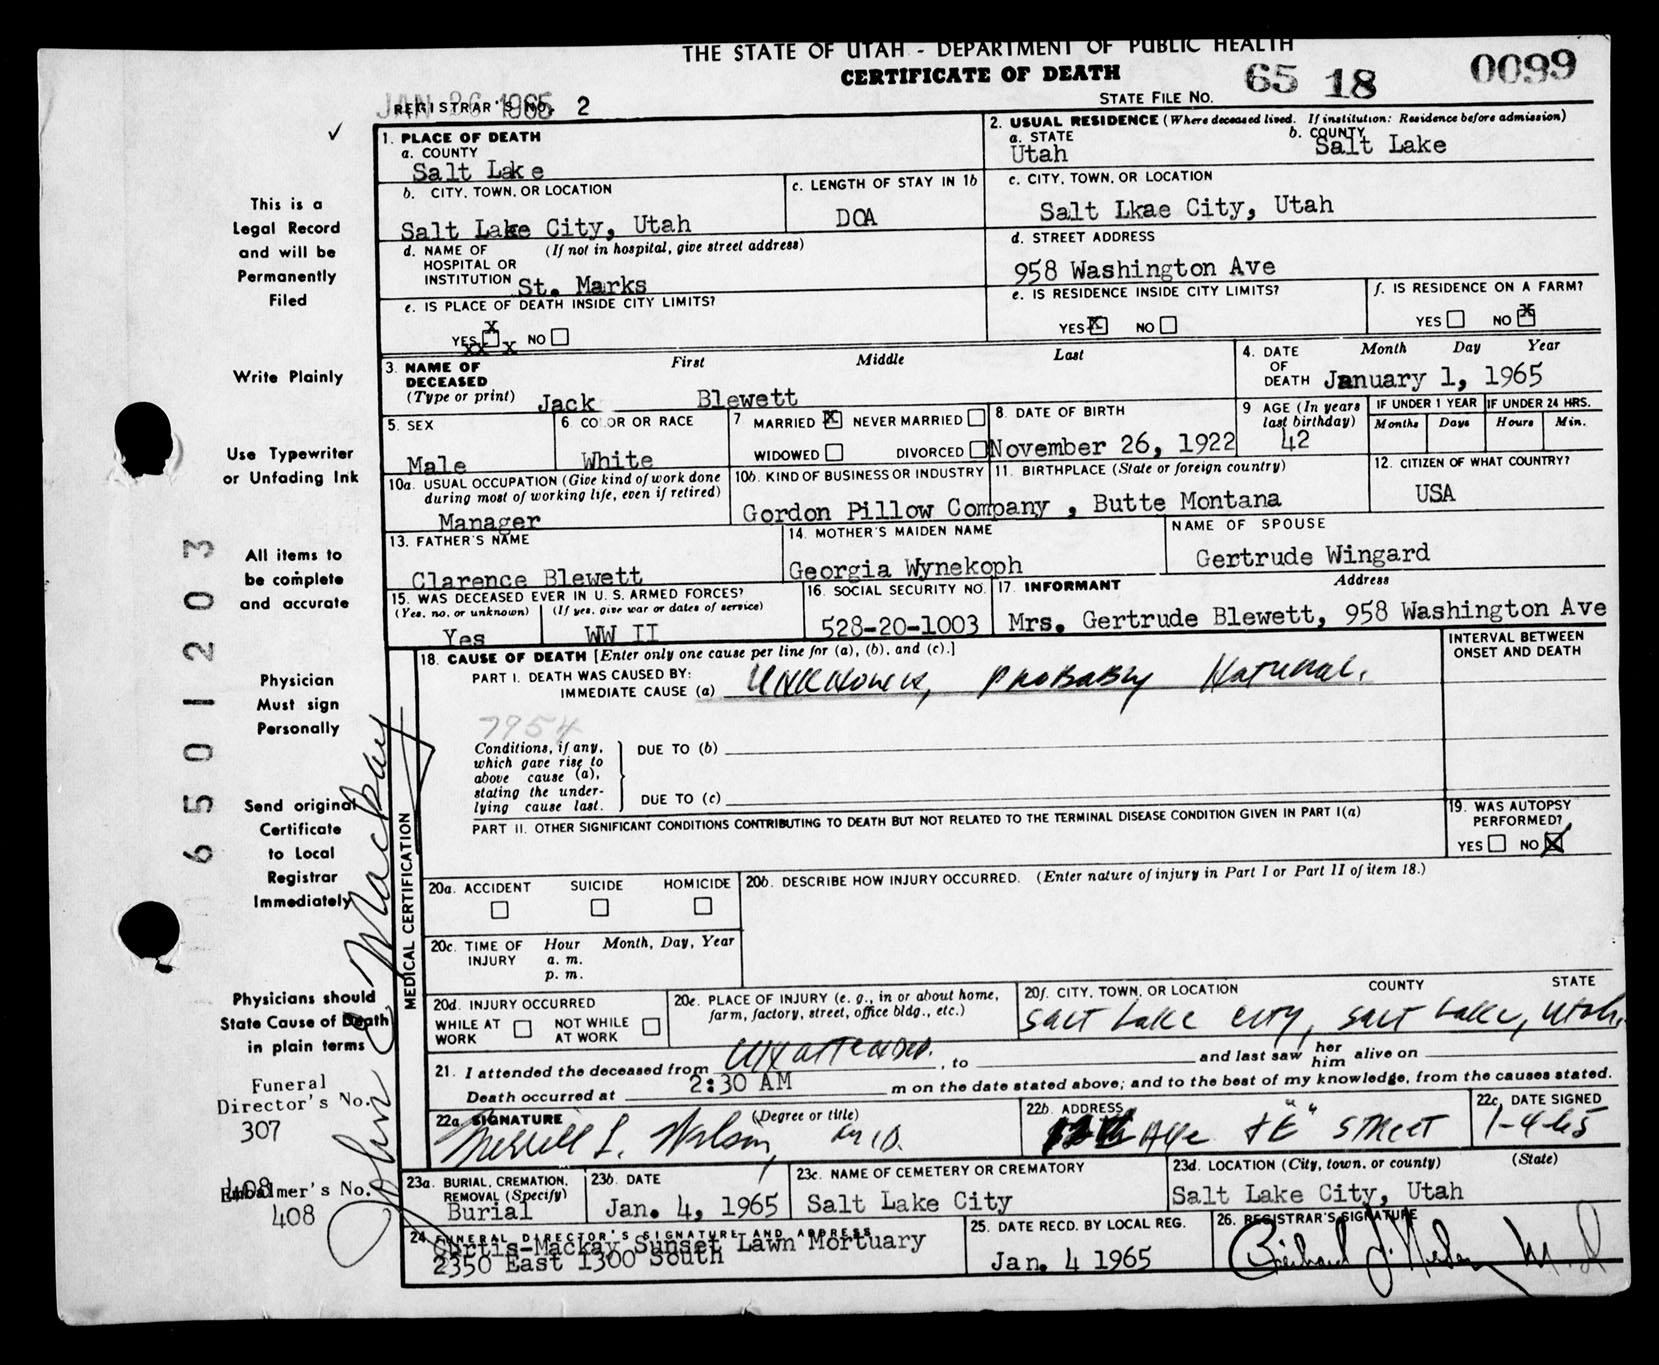 THE STATE OF UTAH - DEPARTMENT OF PUBLIC HEALTH
CERTIFICATE OF DEATH
STATE FILE NO. 65 18 0099
JAN 26 1965
REGISTRAR'S NO. 2
✓
1. PLACE OF DEATH
a. COUNTY
Salt Lake
2. USUAL RESIDENCE (Where deceased lived. If institution: Residence before admission)
a. STATE
Utah
b. COUNTY
Salt Lake
b. CITY, TOWN, OR LOCATION
Salt Lake City, Utah
c. LENGTH OF STAY IN 1b
DOA
c. CITY, TOWN, OR LOCATION
Salt Lkae City, Utah
d. NAME OF HOSPITAL OR INSTITUTION (If not in hospital, give street address)
St. Marks
d. STREET ADDRESS
958 Washington Ave
e. IS PLACE OF DEATH INSIDE CITY LIMITS?
YES X NO
e. IS RESIDENCE INSIDE CITY LIMITS?
YES X NO
f. IS RESIDENCE ON A FARM?
YES NO X
3. NAME OF DECEASED (Type or print)
First Middle Last
Jack Blewett
4. DATE OF DEATH Month Day Year
January 1, 1965
5. SEX
Male
6. COLOR OR RACE
White
7. MARRIED X NEVER MARRIED
WIDOWED DIVORCED
8. DATE OF BIRTH
November 26, 1922
9 AGE (In years last birthday)
42
IF UNDER 1 YEAR
Months Days
IF UNDER 24 HRS.
Hours Min.
10a. USUAL OCCUPATION (Give kind of work done during most of working life, even if retired)
Manager
10b. KIND OF BUSINESS OR INDUSTRY
Gordon Pillow Company
11. BIRTHPLACE (State or foreign country)
, Butte Montana
12. CITIZEN OF WHAT COUNTRY?
USA
13. FATHER'S NAME
Clarence Blewett
14. MOTHER'S MAIDEN NAME
Georgia Wynekoph
NAME OF SPOUSE
Gertrude Wingard
15. WAS DECEASED EVER IN U. S. ARMED FORCES?
(Yes, no, or unknown) (If yes, give war or dates of service)
Yes WW II
16. SOCIAL SECURITY NO.
528-20-1003
17. INFORMANT Address
Mrs. Gertrude Blewett, 958 Washington Ave
18. CAUSE OF DEATH [Enter only one cause per line for (a), (b), and (c).]
INTERVAL BETWEEN ONSET AND DEATH
PART I. DEATH WAS CAUSED BY:
IMMEDIATE CAUSE (a) Unknown, Probably Natural.
7954
Conditions, if any, which gave rise to above cause (a), stating the underlying cause last.
DUE TO (b)
DUE TO (c)
PART II. OTHER SIGNIFICANT CONDITIONS CONTRIBUTING TO DEATH BUT NOT RELATED TO THE TERMINAL DISEASE CONDITION GIVEN IN PART I(a)
19. WAS AUTOPSY PERFORMED?
YES NO X
MEDICAL CERTIFICATION
20a. ACCIDENT SUICIDE HOMICIDE
20b. DESCRIBE HOW INJURY OCCURRED. (Enter nature of injury in Part I or Part II of item 18.)
20c. TIME OF INJURY Hour Month, Day, Year
a. m.
p. m.
20d. INJURY OCCURRED
WHILE AT WORK NOT WHILE AT WORK
20e. PLACE OF INJURY (e. g., in or about home, farm, factory, street, office bldg., etc.)
20f. CITY, TOWN, OR LOCATION COUNTY STATE
Salt Lake City, Salt Lake, Utah.
21. I attended the deceased from Unattended. , to and last saw her him alive on
Death occurred at 2:30 AM m on the date stated above; and to the best of my knowledge, from the causes stated.
22a. SIGNATURE (Degree or title)
Merrill L. Wilson, M.D.
22b. ADDRESS
Ave & "E" Street
22c. DATE SIGNED
1-4-65
23a. BURIAL, CREMATION, REMOVAL (Specify)
Burial
23b. DATE
Jan. 4, 1965
23c. NAME OF CEMETERY OR CREMATORY
Salt Lake City
23d. LOCATION (City, town, or county) (State)
Salt Lake City, Utah
24. FUNERAL DIRECTOR'S SIGNATURE AND ADDRESS
Curtis-Mackay Sunset Lawn Mortuary
2350 East 1300 South
25. DATE RECD. BY LOCAL REG.
Jan. 4 1965
26. REGISTRAR'S SIGNATURE
This is a
Legal Record
and will be
Permanently
Filed
Write Plainly
Use Typewriter
or Unfading Ink
All items to
be complete
and accurate
Physician
Must sign
Personally
Send original
Certificate
to Local
Registrar
Immediately
Physicians should
State Cause of Death
in plain terms
Funeral
Director's No.
307
408
Embalmer's No.
408
6501203
John Mackay